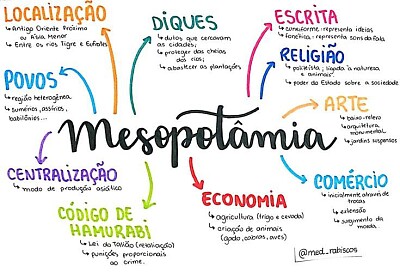 LOCALIZAÇÃO
↳ Antigo Oriente Próximo
ou Ásia Menor
↳ Entre os rios Tigre e Eufrates
DIQUES
↳ dutos que cercavam
as cidades;
↳ proteger das cheias
dos rios;
↳ abastecer as plantações
ESCRITA
↳ cuneiforme - representa ideias
↳ fonética - representa sons da fala
RELIGIÃO
↳ politeísta; ligada à natureza
e animais.
↳ poder do Estado sobre a sociedade
POVOS
↳ região heterogênea
↳ sumérios, assírios,
babilônios...
ARTE
↳ baixo-relevo
↳ arquitetura
monumental
↳ jardins suspensos
Mesopotâmia
CENTRALIZAÇÃO
↳ modo de produção asiático
COMÉRCIO
↳ inicialmente através de
trocas
↳ extensão
↳ surgimento da
moeda.
CÓDIGO DE
HAMURABI
↳ Lei do Talião (retaliação)
↳ punições proporcionais
ao crime.
ECONOMIA
↳ agricultura (trigo e cevada)
↳ criação de animais
(gado, cabras, aves)
@med_rabiscos